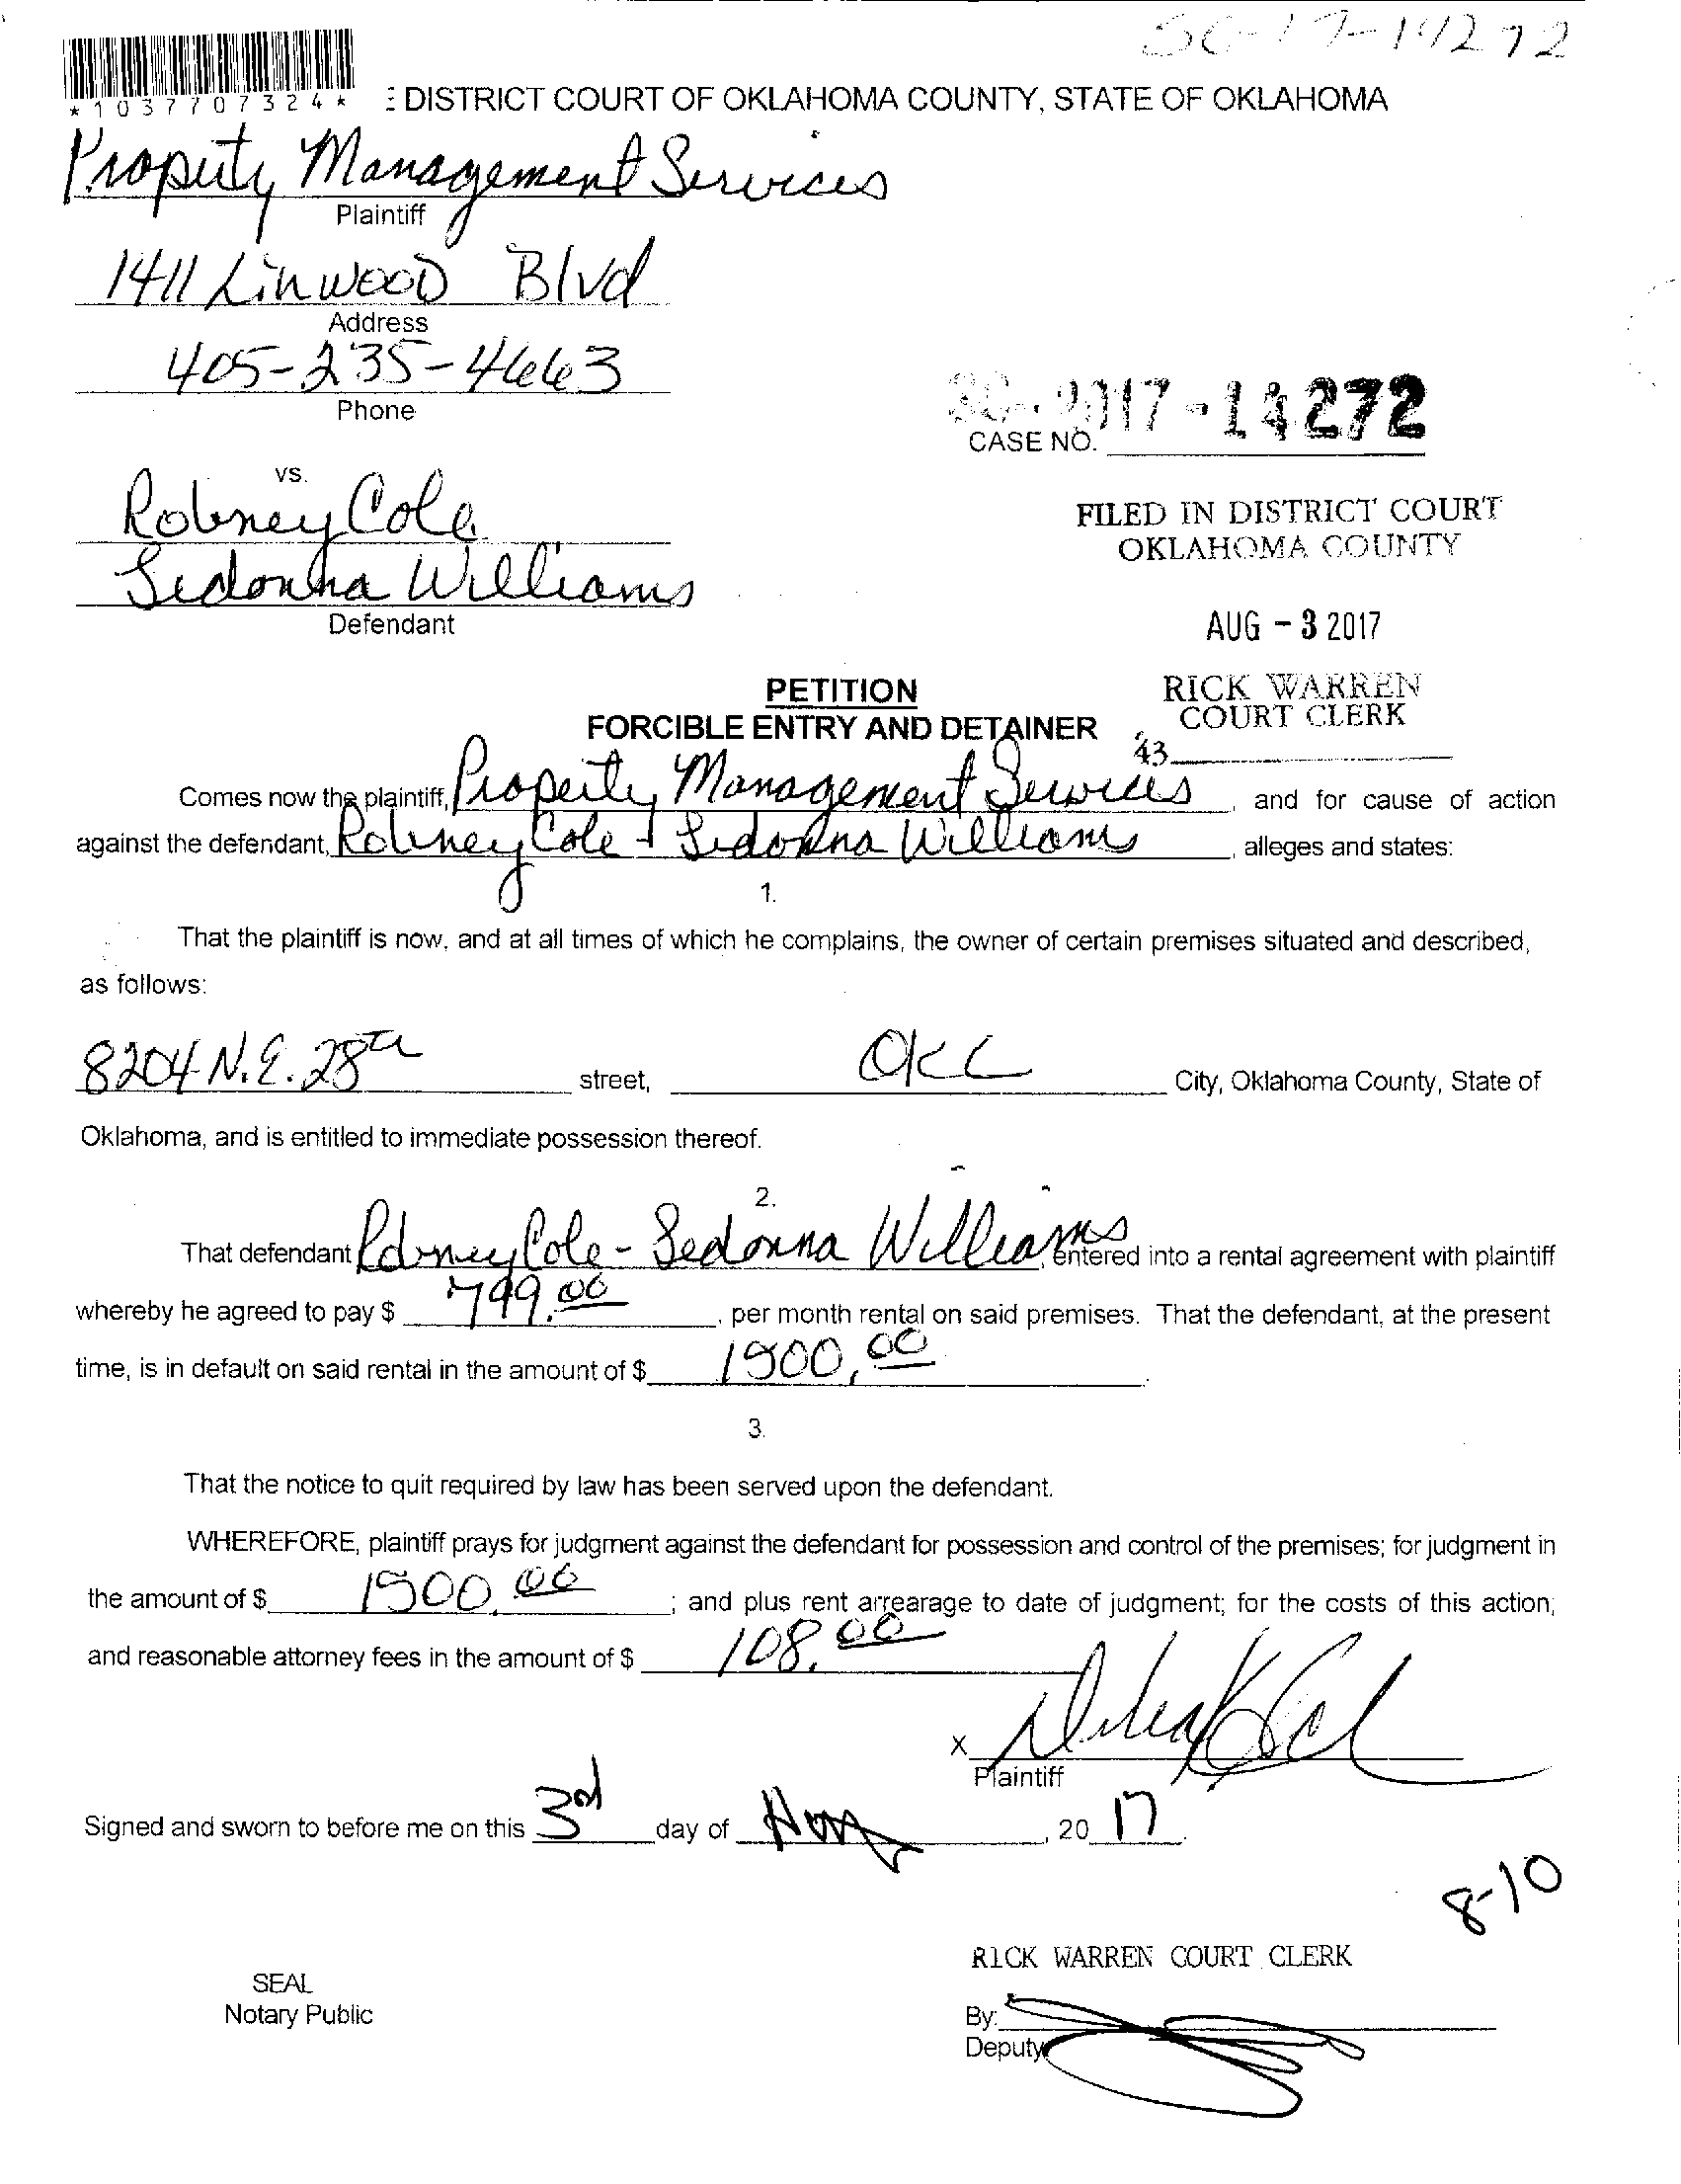 SC-17-14272
*1037707324*
: DISTRICT COURT OF OKLAHOMA COUNTY, STATE OF OKLAHOMA
Property Management Services
Plaintiff
1411 Linwood Blvd
Address
405-235-4663
Phone
SC-2017-14272
CASE NO.
vs.
Rodney Cole
Sedonna Williams
Defendant
FILED IN DISTRICT COURT
OKLAHOMA COUNTY
AUG - 3 2017
RICK WARREN
COURT CLERK
43
PETITION
FORCIBLE ENTRY AND DETAINER
Comes now the plaintiff, Property Management Services, and for cause of action
against the defendant, Rodney Cole + Sedonna Williams, alleges and states:
1.
That the plaintiff is now, and at all times of which he complains, the owner of certain premises situated and described,
as follows:
8204 N.E. 28th street, OKC City, Oklahoma County, State of
Oklahoma, and is entitled to immediate possession thereof.
2.
That defendant Rodney Cole - Sedonna Williams, entered into a rental agreement with plaintiff
whereby he agreed to pay $ 799.00, per month rental on said premises. That the defendant, at the present
time, is in default on said rental in the amount of $ 1500.00.
3.
That the notice to quit required by law has been served upon the defendant.
WHEREFORE, plaintiff prays for judgment against the defendant for possession and control of the premises; for judgment in
the amount of $ 1500.00; and plus rent arrearage to date of judgment; for the costs of this action;
and reasonable attorney fees in the amount of $ 108.00
X
Plaintiff
Signed and sworn to before me on this 3rd day of Aug, 2017.
8-10
RICK WARREN COURT CLERK
SEAL
Notary Public
By:
Deputy